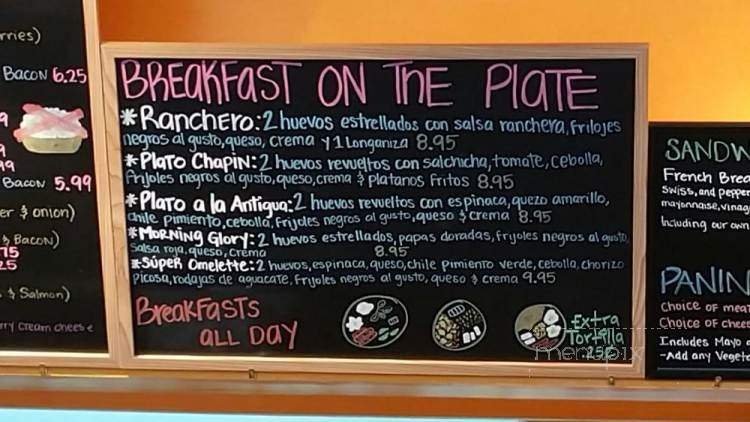 rries)
BACON 6.25
9
9
99
BACON 5.99
er & onion)
& BACON)
75
25
& Salmon)
rry cream cheese
BREAKFAST ON THE PLATE
*Ranchero: 2 huevos estrellados con salsa ranchera, Frilojes
negros al gusto, queso, crema y 1 Longaniza 8.95
*PLATO CHAPIN: 2 huevos revueltos con salchicha, tomate, cebolla,
Frijoles negros al gusto, queso, crema & Platanos Fritos 8.95
*Plato a la Antigua: 2 huevos revueltos con espinaca, quezo amarillo,
chile pimiento, cebolla, Frijoles negros al gusto, queso & crema 8.95
*MORNING GLORY: 2 huevos estrellados, papas doradas, Frijoles negros al gusto,
salsa roja, queso, crema 8.95
*SÚPER OMELETTE: 2 huevos, espinaca, queso, chile pimiento verde, cebolla, chorizo
picosa, rodajas de aguacate, Frijoles negros al gusto, queso & crema 9.95
BREAKFASTS
ALL DAY
Extra
Tortilla
25¢
menupix
SANDW
French Brea
Swiss, and pepper
mayonnaise, vinag
Including our own
PANIN
Choice of meat
Choice of chees
Includes Mayo
-Add any Vegeta